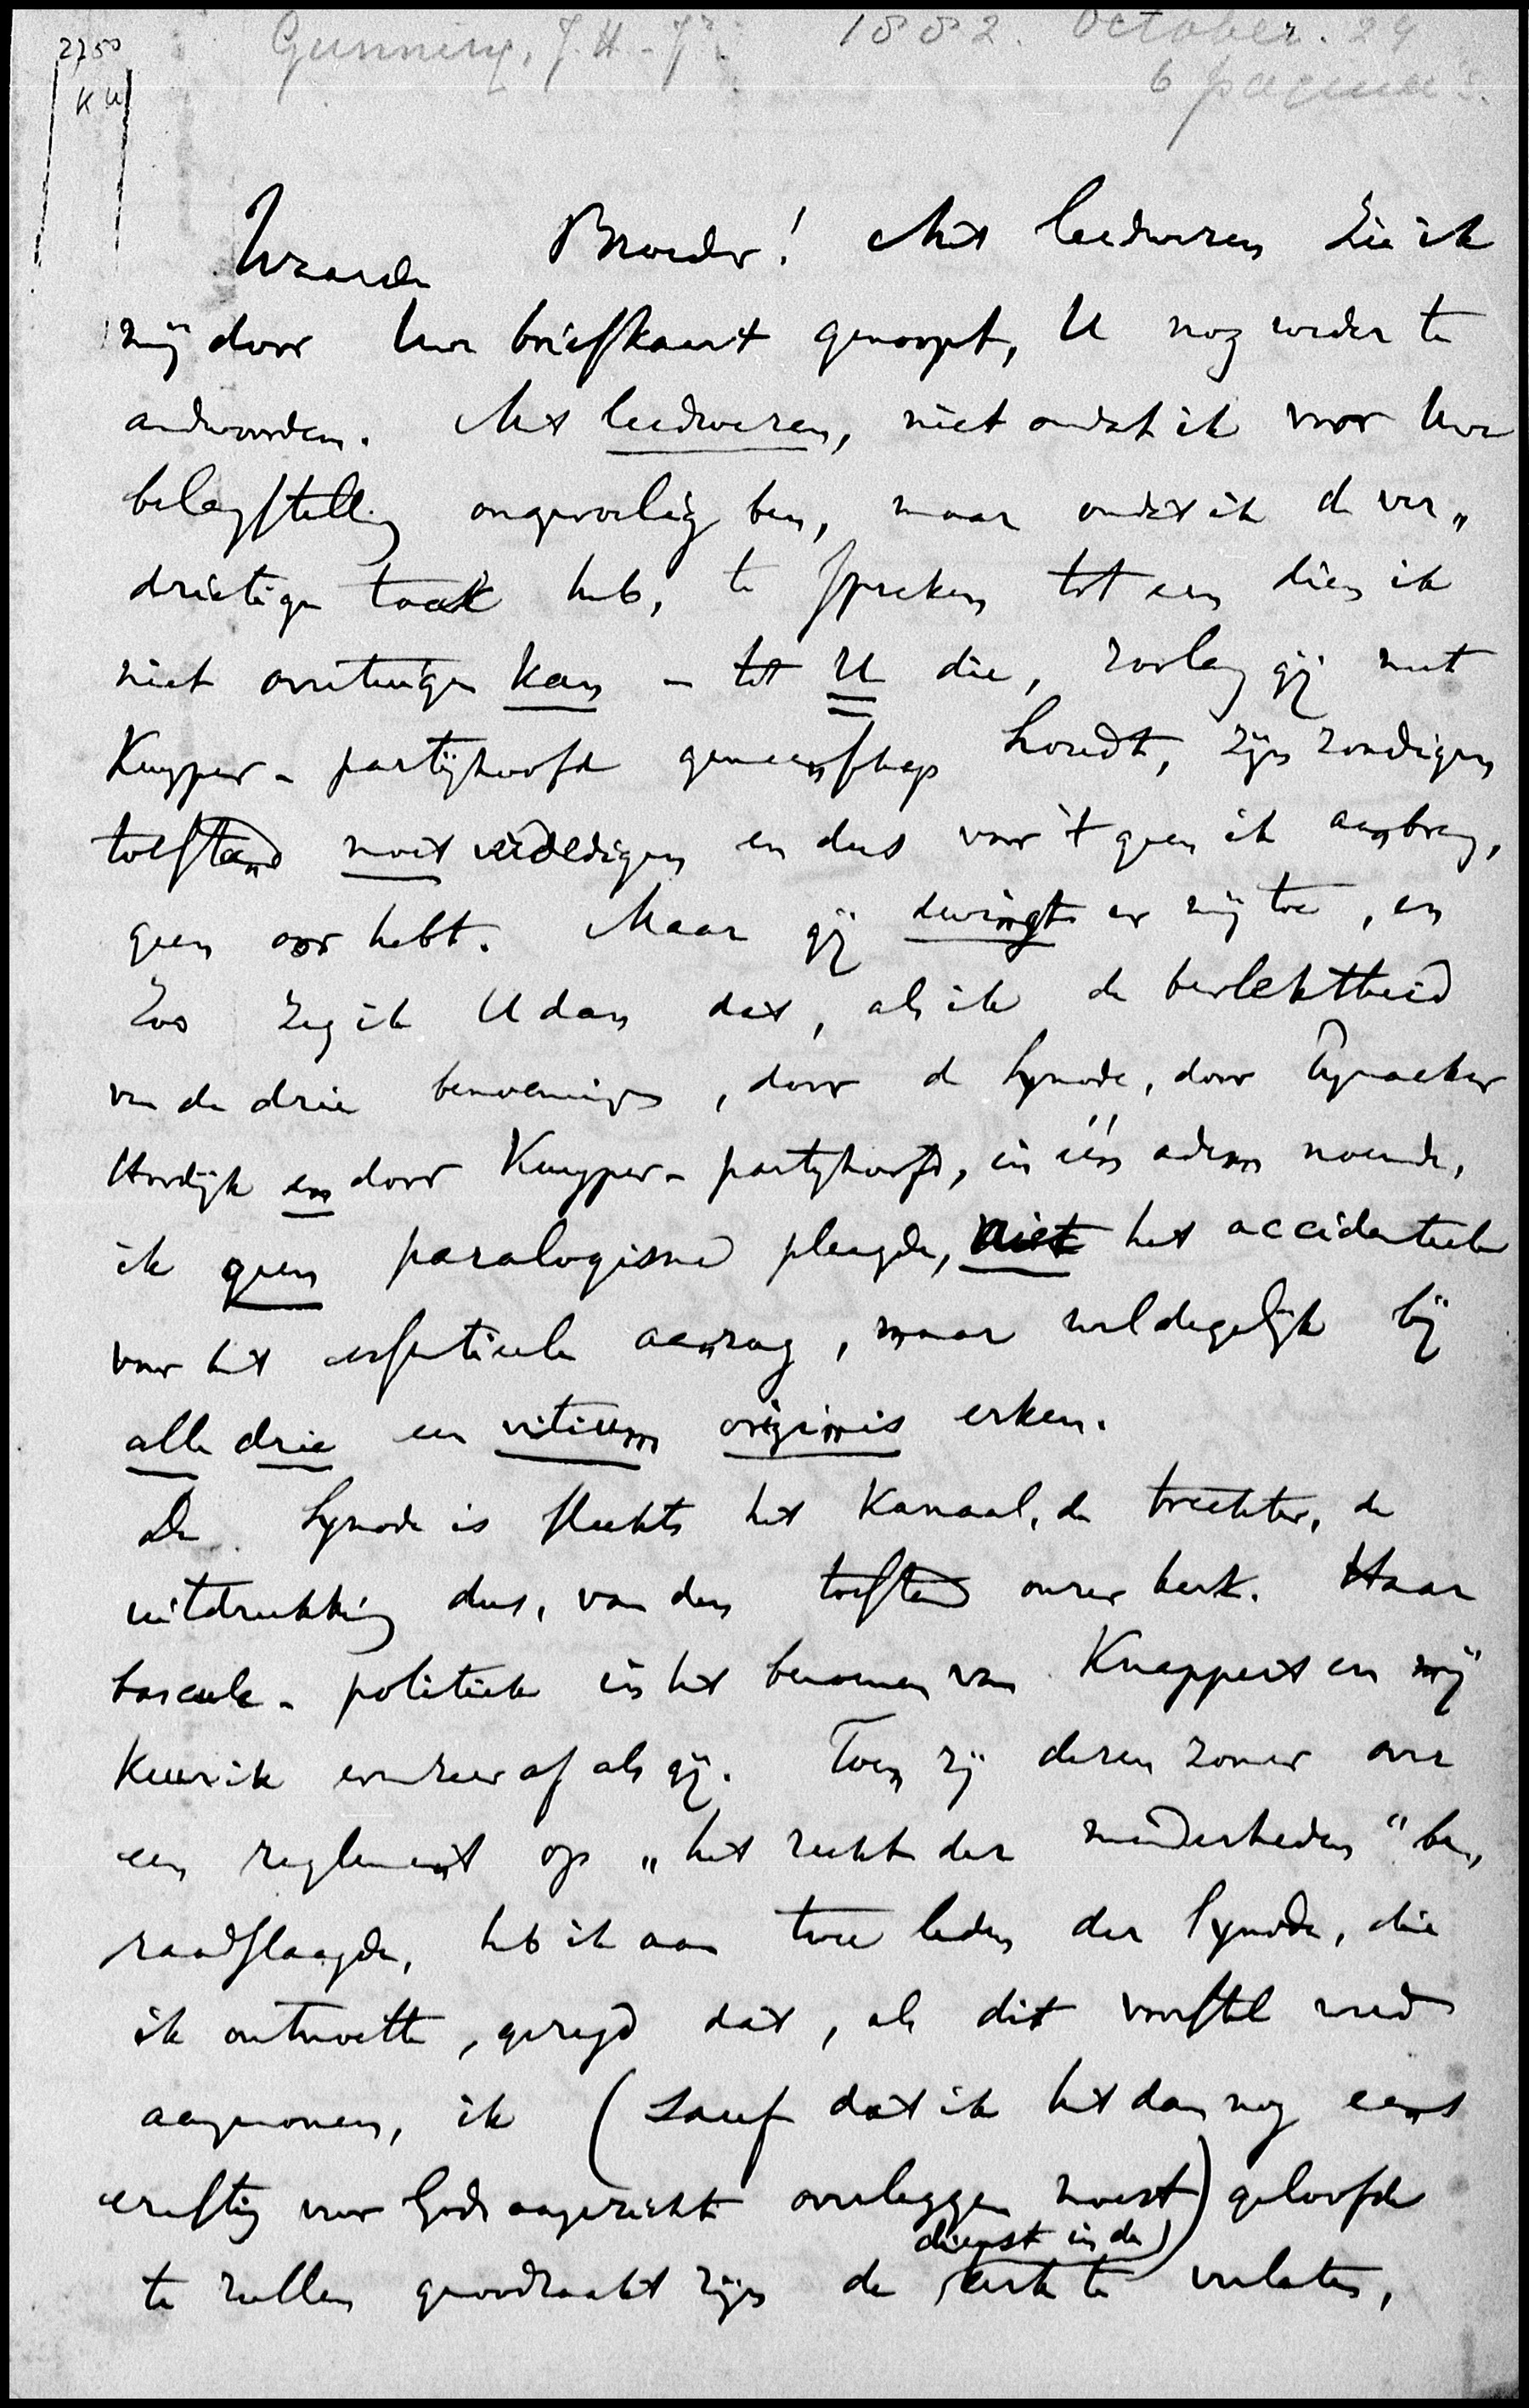 Gunning, J.H. Jr. 1882. October. 24
6 pagina's.
2750
KU
Waarde Broeder! Met leedwezen zie ik
mij door Uwe briefkaart genoopt, U nog weder te
andwoorden. Met leedwezen, niet omdat ik voor Uwe
belangstelling ongevoelig ben, maar omdat ik de ver„
drietige taak heb, te spreken tot een dien ik
niet overtuigen kan – tot U die, zoolang gij met
Kuyper-partijhoofd gemeenschap houdt, zijn zondigen
toestand moet verdedigen en dus voor 't geen ik aanbreng,
geen oor hebt. Maar gij dwingt er mij toe, en
zoo zeg ik U dan dat, als ik de bevlektheid
van de drie benoemingen, door de Synode, door Cynaeker
Hordijk en door Kuyper-partijhoofd, in één adem noemde,
ik geen paralogisme pleegde, niet het accidenteele
voor het essentieele aanzag, maar weldegelijk bij
alle drie een vitium originis erken.
De Synode is slechts het kanaal, de trechter, de
uitdrukking dus, van den toestand onzer kerk. Haar
bascule-politiek in het benoemen van Knappert en mij
keur ik evenzeer af als gij. Toen zij dezen zomer over
een reglement op „het recht der minderheden" be„
raadslaagde, heb ik aan twee leden der Synode, die
ik ontmoette, gezegd dat, als dit voorstel werd
aangenomen, ik (sauf dat ik het dan nog eens
ernstig voor Gods aangezicht overleggen moest) geloofde
te zullen genoodzaakt zijn de dienst in de kerk te verlaten,